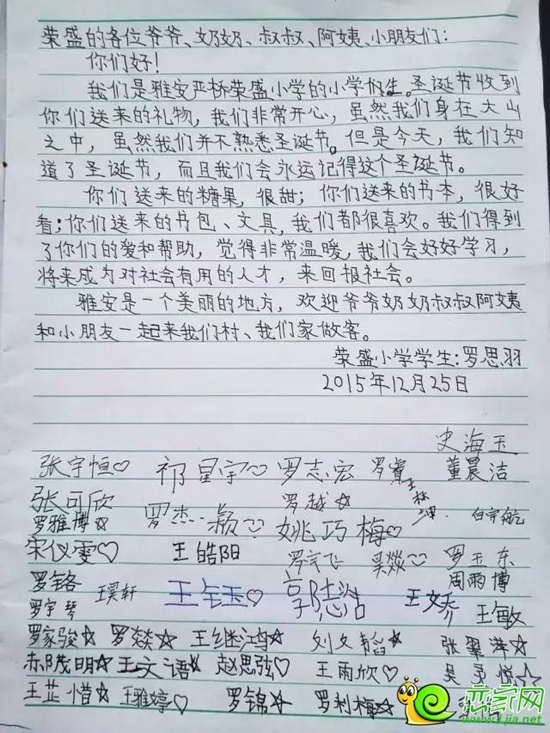 荣盛的各位爷爷、奶奶、叔叔、阿姨、小朋友们：
你们好！
我们是雅安严桥荣盛小学的小学生。圣诞节收到
你们送来的礼物，我们非常开心，虽然我们身在大山
之中，虽然我们并不熟悉圣诞节。但是今天，我们知
道了圣诞节，而且我们会永远记得这个圣诞节。
你们送来的糖果，很甜；你们送来的书本，很好
看；你们送来的书包、文具，我们都很喜欢。我们得到
了你们的爱和帮助，觉得非常温暖，我们会好好学习，
将来成为对社会有用的人才，来回报社会。
雅安是一个美丽的地方，欢迎爷爷奶奶叔叔阿姨
和小朋友一起来我们村、我们家做客。
荣盛小学学生：罗思羽
2015年12月25日
史海玉
张宇恒♡ 祁星宇♡ 罗志宏 董晨洁
张可欣 罗杰 颖♡ 罗越☆
罗雅博☆ 姚巧梅♡
宋仪雯♡ 王皓阳 罗玉东
罗铬 王昊轩 王钰♡ 周雨博
罗宇琴 王敏
罗家骏☆ 罗燚☆ 王继鸿☆ 刘文韬☆
王文语☆ 赵思弦♡ 王雨欣♡
王芷惜☆ 王雅婷♡ 罗锦☆ 罗利梅☆
恋家网
www.ljia.net